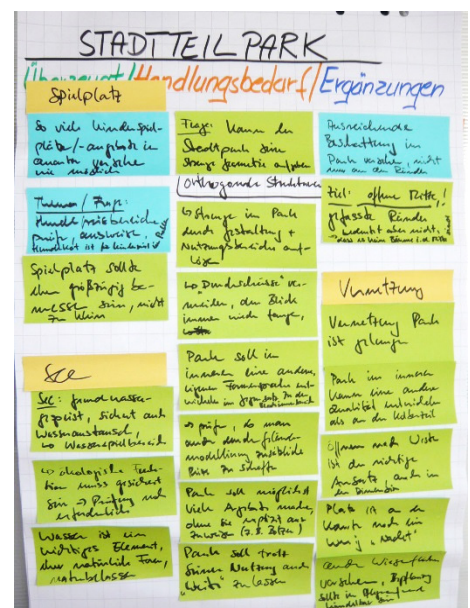 STADTTEILPARK
Überzeugt/Handlungsbedarf/Ergänzungen
Spielplatz
So viele Kinderspiel-
plätze/-angebote in
Quartier vorsehen
wie möglich
Themen/Frage:
Hunde
prüfen, ausweisen,
Spielplatz sollte
eher großzügig be-
messen sein, nicht
zu klein
See
See: grundwasser-
gespeist, sichert auch
Wasseraustausch,
↳ Wasserspielbereich
↳ ökologische Funk-
tion muss gesichert
sein → Prüfung noch
erforderlich
Wasser ist ein
wichtiges Element,
eher natürliche Form,
naturbelassen
Frage: Kann der
Stadtpark seine
strenge Geometrie aufgeben
(orthogonale Strukturen)
↳ Strenge im Park
durch Gestaltung +
Nutzungsbereiche auf-
lösen
↳ "Durchschüsse" ver-
meiden, den Blick
immer wieder fangen,
Park soll im
inneren eine andere,
eigene Formensprache ent-
wickeln im Gegensatz zu den
↳ prüfen, ob man
auch durch Gelände-
modellierung zusätzliche
zu schaffen
Park soll möglichst
viele Angebote machen,
ohne sie explizit aus-
zuweisen (z.B.
Park soll trotz
seiner Nutzung auch
"Weite" zulassen
Ausreichende
im
Park vorsehen, nicht
nur an den Rändern
Ziel: offene Mitte,
gefasste Ränder
→ bedeutet aber nicht,
dass es kein Bäume i.d. Mitte
Vernetzung
Vernetzung Park
ist gelungen
Park im inneren
kann eine andere
Qualität entwickeln
als an den
Öffnung nach Westen
ist der richtige
Ansatz, auch in
der Dimension
Platz ist an der
Kante noch ein
wenig "nackt"
auch Wiesenflächen
vorsehen,
sollte in